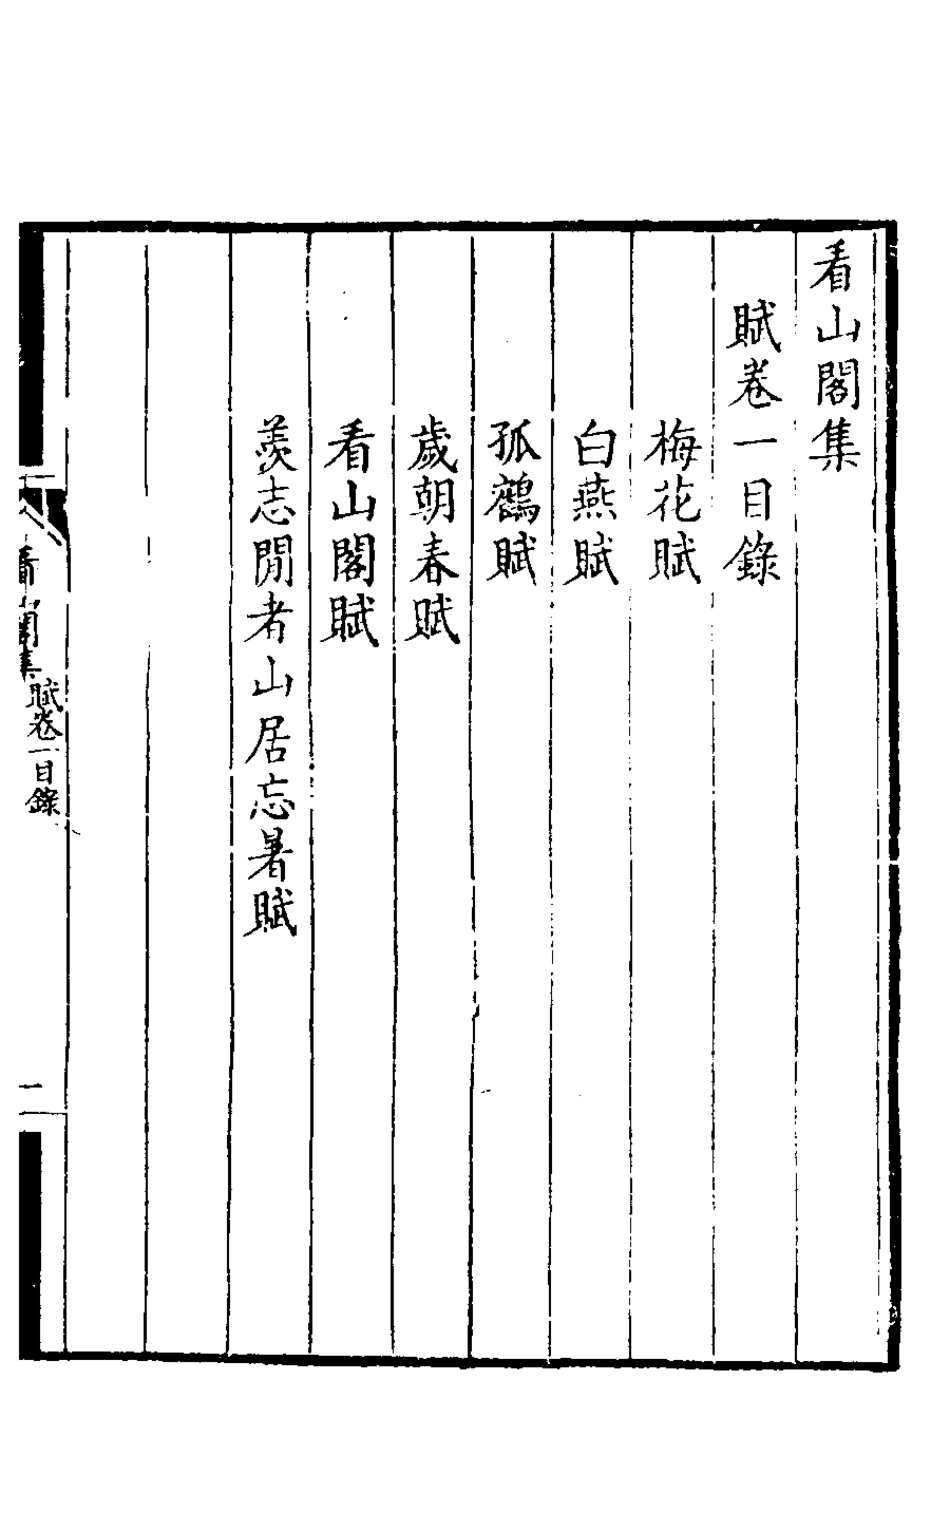 看山閣集
賦卷一目錄
梅花賦
白燕賦
孤鶴賦
歲朝春賦
看山閣賦
羨志閒者山居忘暑賦
看山閣集
賦卷一目錄
一